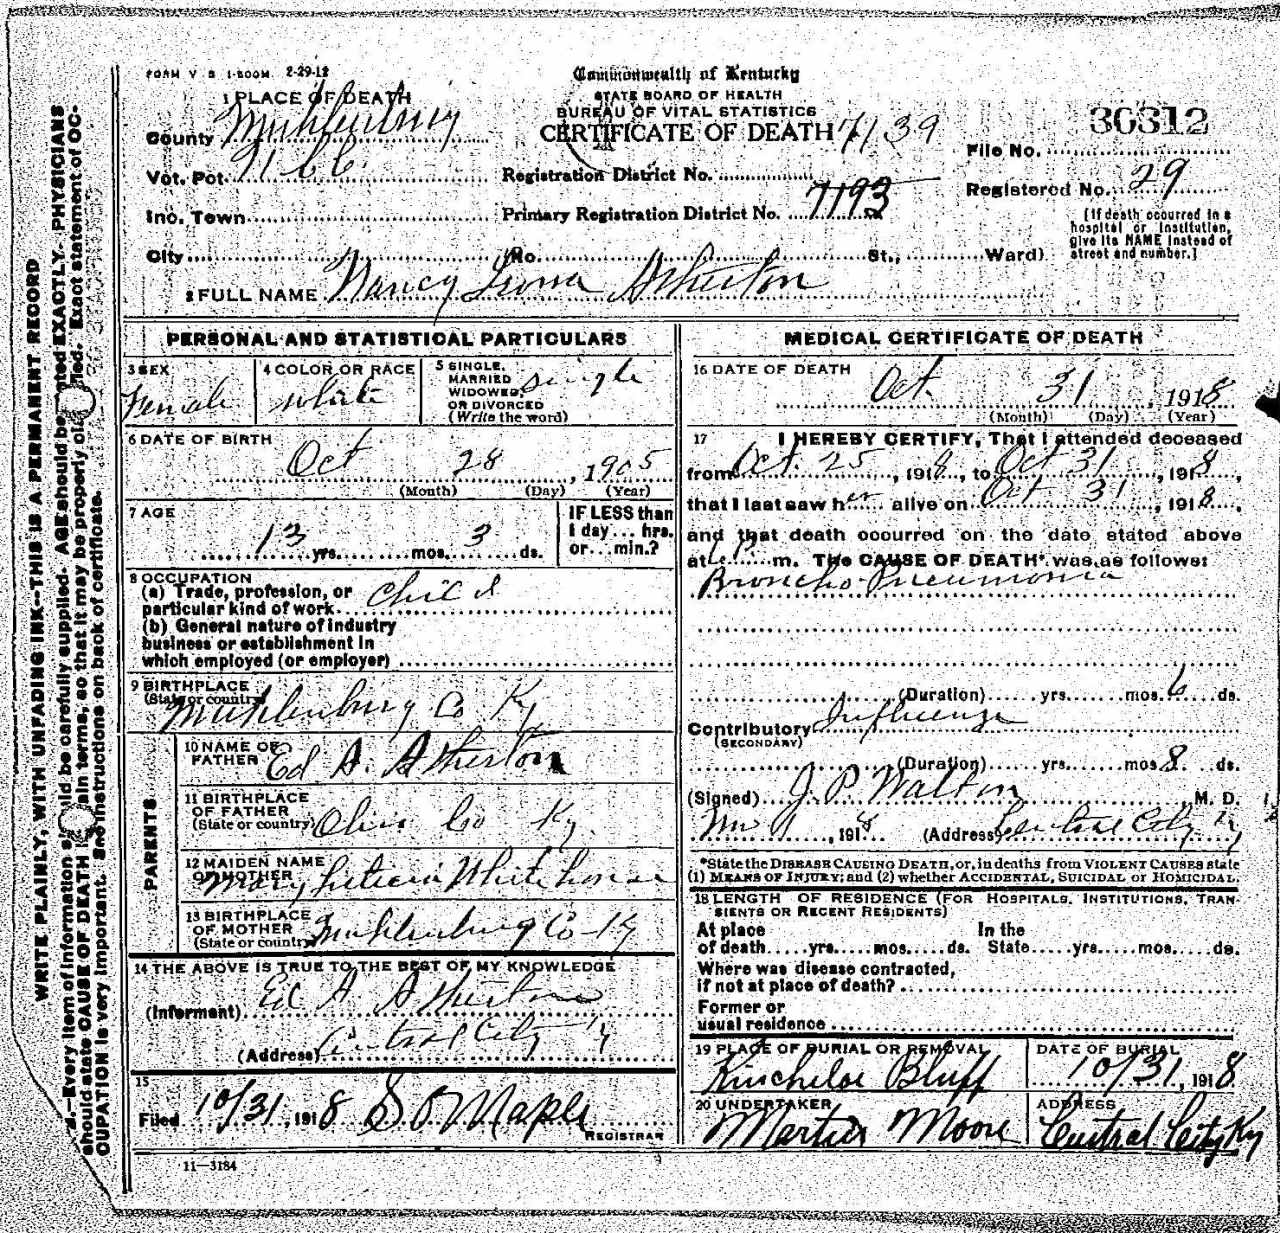 FORM V S 1-500M 2-29-12
Commonwealth of Kentucky
STATE BOARD OF HEALTH
BUREAU OF VITAL STATISTICS
CERTIFICATE OF DEATH 7139
1 PLACE OF DEATH
County Muhlenburg
Vot. Pct.
Inc. Town
City
No. St., Ward)
Registration District No.
Primary Registration District No. 7193
File No. 30312
Registered No. 29
[If death occurred in a
hospital or institution,
give its NAME instead of
street and number.]
2 FULL NAME Nancy Leona Atherton
PERSONAL AND STATISTICAL PARTICULARS
3 SEX
Female
4 COLOR OR RACE
white
5 SINGLE,
MARRIED
WIDOWED,
OR DIVORCED
(Write the word)
single
6 DATE OF BIRTH
Oct 28, 1905
(Month) (Day) (Year)
7 AGE
13 yrs. mos. 3 ds.
IF LESS than
1 day... hrs.
or... min.?
8 OCCUPATION
(a) Trade, profession, or
particular kind of work Child
(b) General nature of industry
business or establishment in
which employed (or employer)
9 BIRTHPLACE
(State or country)
Muhlenburg Co Ky
PARENTS
10 NAME OF
FATHER Ed A. Atherton
11 BIRTHPLACE
OF FATHER
(State or country) Ohio Co Ky.
12 MAIDEN NAME
OF MOTHER
Mary Leticia Whitehouse
13 BIRTHPLACE
OF MOTHER
(State or country) Muhlenburg Co Ky
14 THE ABOVE IS TRUE TO THE BEST OF MY KNOWLEDGE
(Informant) Ed A Atherton
(Address) Central City Ky
15
Filed 10/31, 1918 S O Maple
REGISTRAR
11—3184
MEDICAL CERTIFICATE OF DEATH
16 DATE OF DEATH
Oct. 31, 1918
(Month) (Day) (Year)
17 I HEREBY CERTIFY, That I attended deceased
from Oct. 25, 1918, to Oct 31, 1918,
that I last saw her alive on Oct 31, 1918,
and that death occurred on the date stated above
at P m. The CAUSE OF DEATH* was as follows:
Broncho-Pneumonia
(Duration) yrs. mos. 6 ds.
Contributory Influenza
(SECONDARY)
(Duration) yrs. mos. 8 ds.
(Signed) J. P. Walton M. D.
, 1918 (Address) Central City Ky
*State the DISEASE CAUSING DEATH, or, in deaths from VIOLENT CAUSES state
(1) MEANS OF INJURY; and (2) whether ACCIDENTAL, SUICIDAL or HOMICIDAL.
18 LENGTH OF RESIDENCE (FOR HOSPITALS, INSTITUTIONS, TRAN-
SIENTS OR RECENT RESIDENTS)
At place In the
of death yrs. mos. ds. State yrs. mos. ds.
Where was disease contracted,
if not at place of death?
Former or
usual residence
19 PLACE OF BURIAL OR REMOVAL
Kincheloe Bluff
DATE OF BURIAL
10/31, 1918
20 UNDERTAKER
Martin Moore
ADDRESS
Central City Ky
WRITE PLAINLY, WITH UNFADING INK--THIS IS A PERMANENT RECORD
Every item of information should be carefully supplied. AGE should be stated EXACTLY. PHYSICIANS
should state CAUSE OF DEATH in plain terms, so that it may be properly classified. Exact statement of OC-
CUPATION is very important. See instructions on back of certificate.